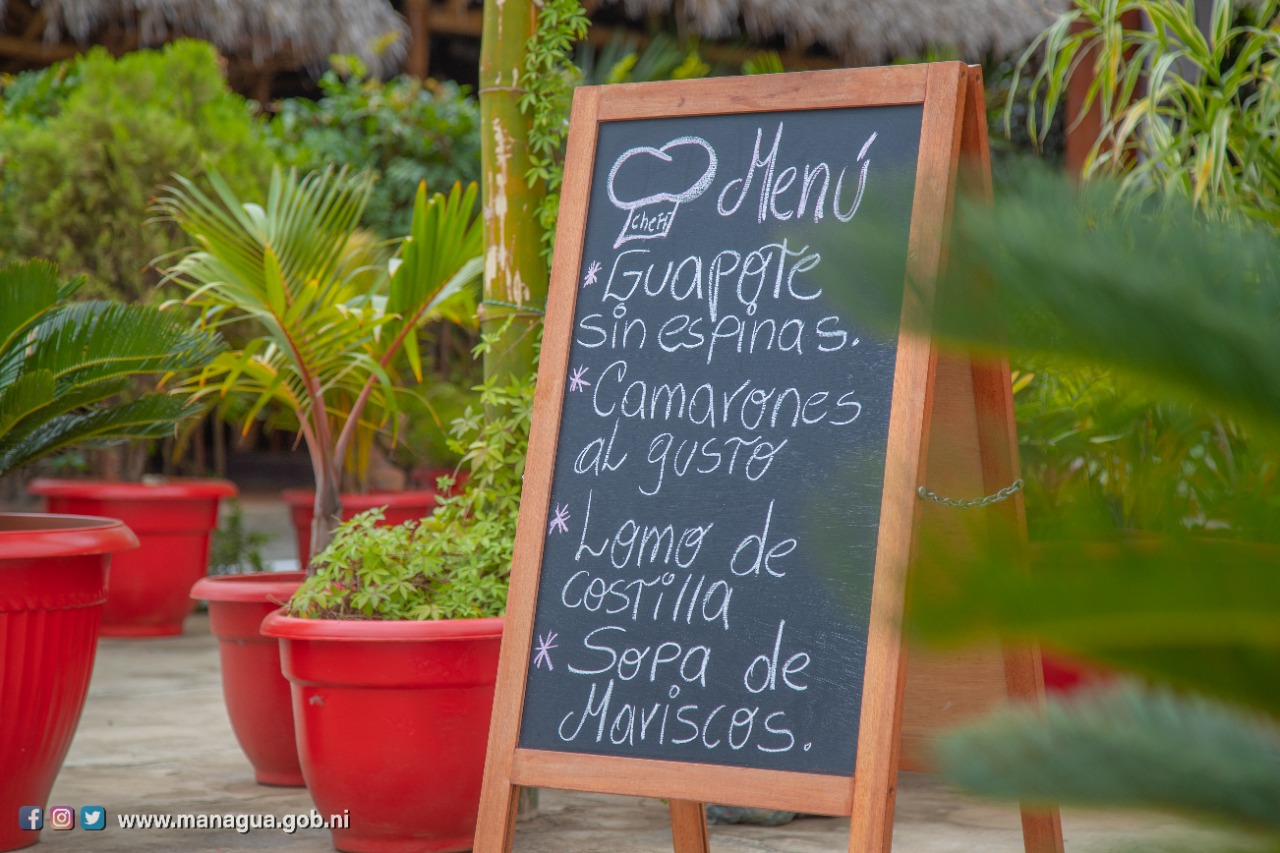 Menú
Chef
* Guapote
sin espinas.
* Camarones
al gusto
* Lomo de
costilla
* Sopa de
Mariscos.
www.managua.gob.ni